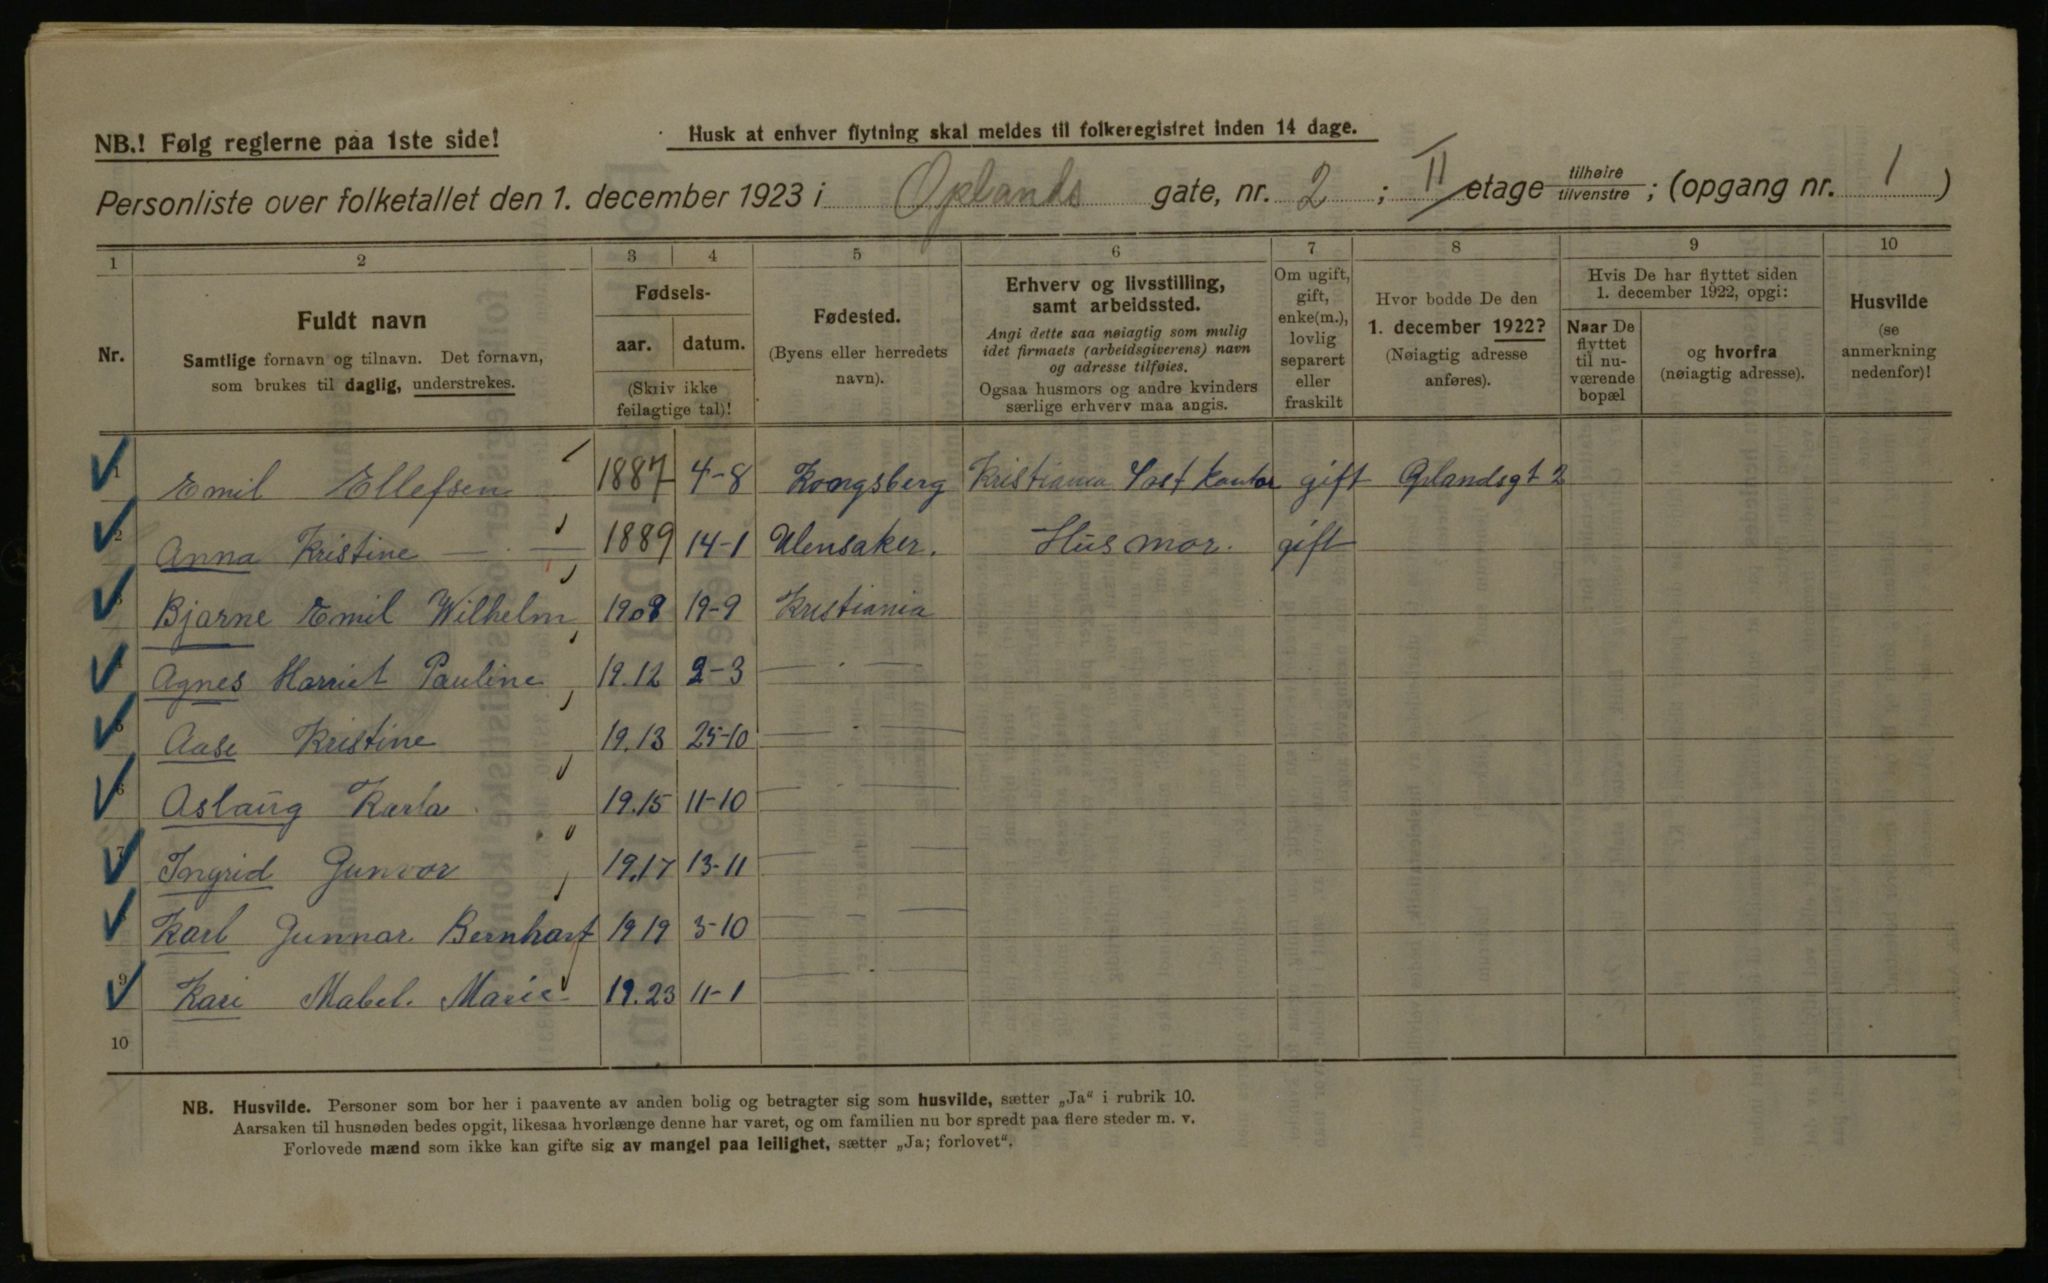 NB.! Følg reglerne paa 1ste side!
Husk at enhver flytning skal meldes til folkeregistret inden 14 dage.
Personliste over folketallet den 1. december 1923 i Oplands gate, nr. 2 ; II etage tilhøire tilvenstre ; (opgang nr. 1 )
1 2 3 4 5 6 7 8 9 10
Nr.
Fuldt navn
Samtlige fornavn og tilnavn. Det fornavn,
som brukes til daglig, understrekes.
Fødsels-
aar. datum.
(Skriv ikke
feilagtige tal)!
Fødested.
(Byens eller herredets
navn).
Erhverv og livsstilling,
samt arbeidssted.
Angi dette saa nøiagtig som mulig
idet firmaets (arbeidsgiverens) navn
og adresse tilføies.
Ogsaa husmors og andre kvinders
særlige erhverv maa angis.
Om ugift,
gift,
enke(m.),
lovlig
separert
eller
fraskilt
Hvor bodde De den
1. december 1922?
(Nøiagtig adresse
anføres).
Hvis De har flyttet siden
1. december 1922, opgi:
Naar De
flyttet
til nu-
værende
bopæl
og hvorfra
(nøiagtig adresse).
Husvilde
(se
anmerkning
nedenfor)!
1 Emil Ellefsen 1887 4-8 Kongsberg Kristiania Post kontor gift Oplandsgt 2
2 Anna Kristine — . — 1889 14-1 Ulensaker. Husmor. gift
3 Bjarne Emil Wilhelm 1908 19-9 Kristiania
4 Agnes Harriet Pauline 19.12 2-3 — . —
5 Aase Kristine 19.13 25-10 — . —
6 Aslaug Karla 19.15 11-10 — . —
7 Ingrid Gunvor 19.17 13-11 — . —
8 Karl Gunnar Bernhart 1919 3-10 — . —
9 Kari Mabel. Marie 19.23 11-1 — . —
10
NB. Husvilde. Personer som bor her i paavente av anden bolig og betragter sig som husvilde, sætter „Ja“ i rubrik 10.
Aarsaken til husnøden bedes opgit, likesaa hvorlænge denne har varet, og om familien nu bor spredt paa flere steder m. v.
Forlovede mænd som ikke kan gifte sig av mangel paa leilighet, sætter „Ja; forlovet“.